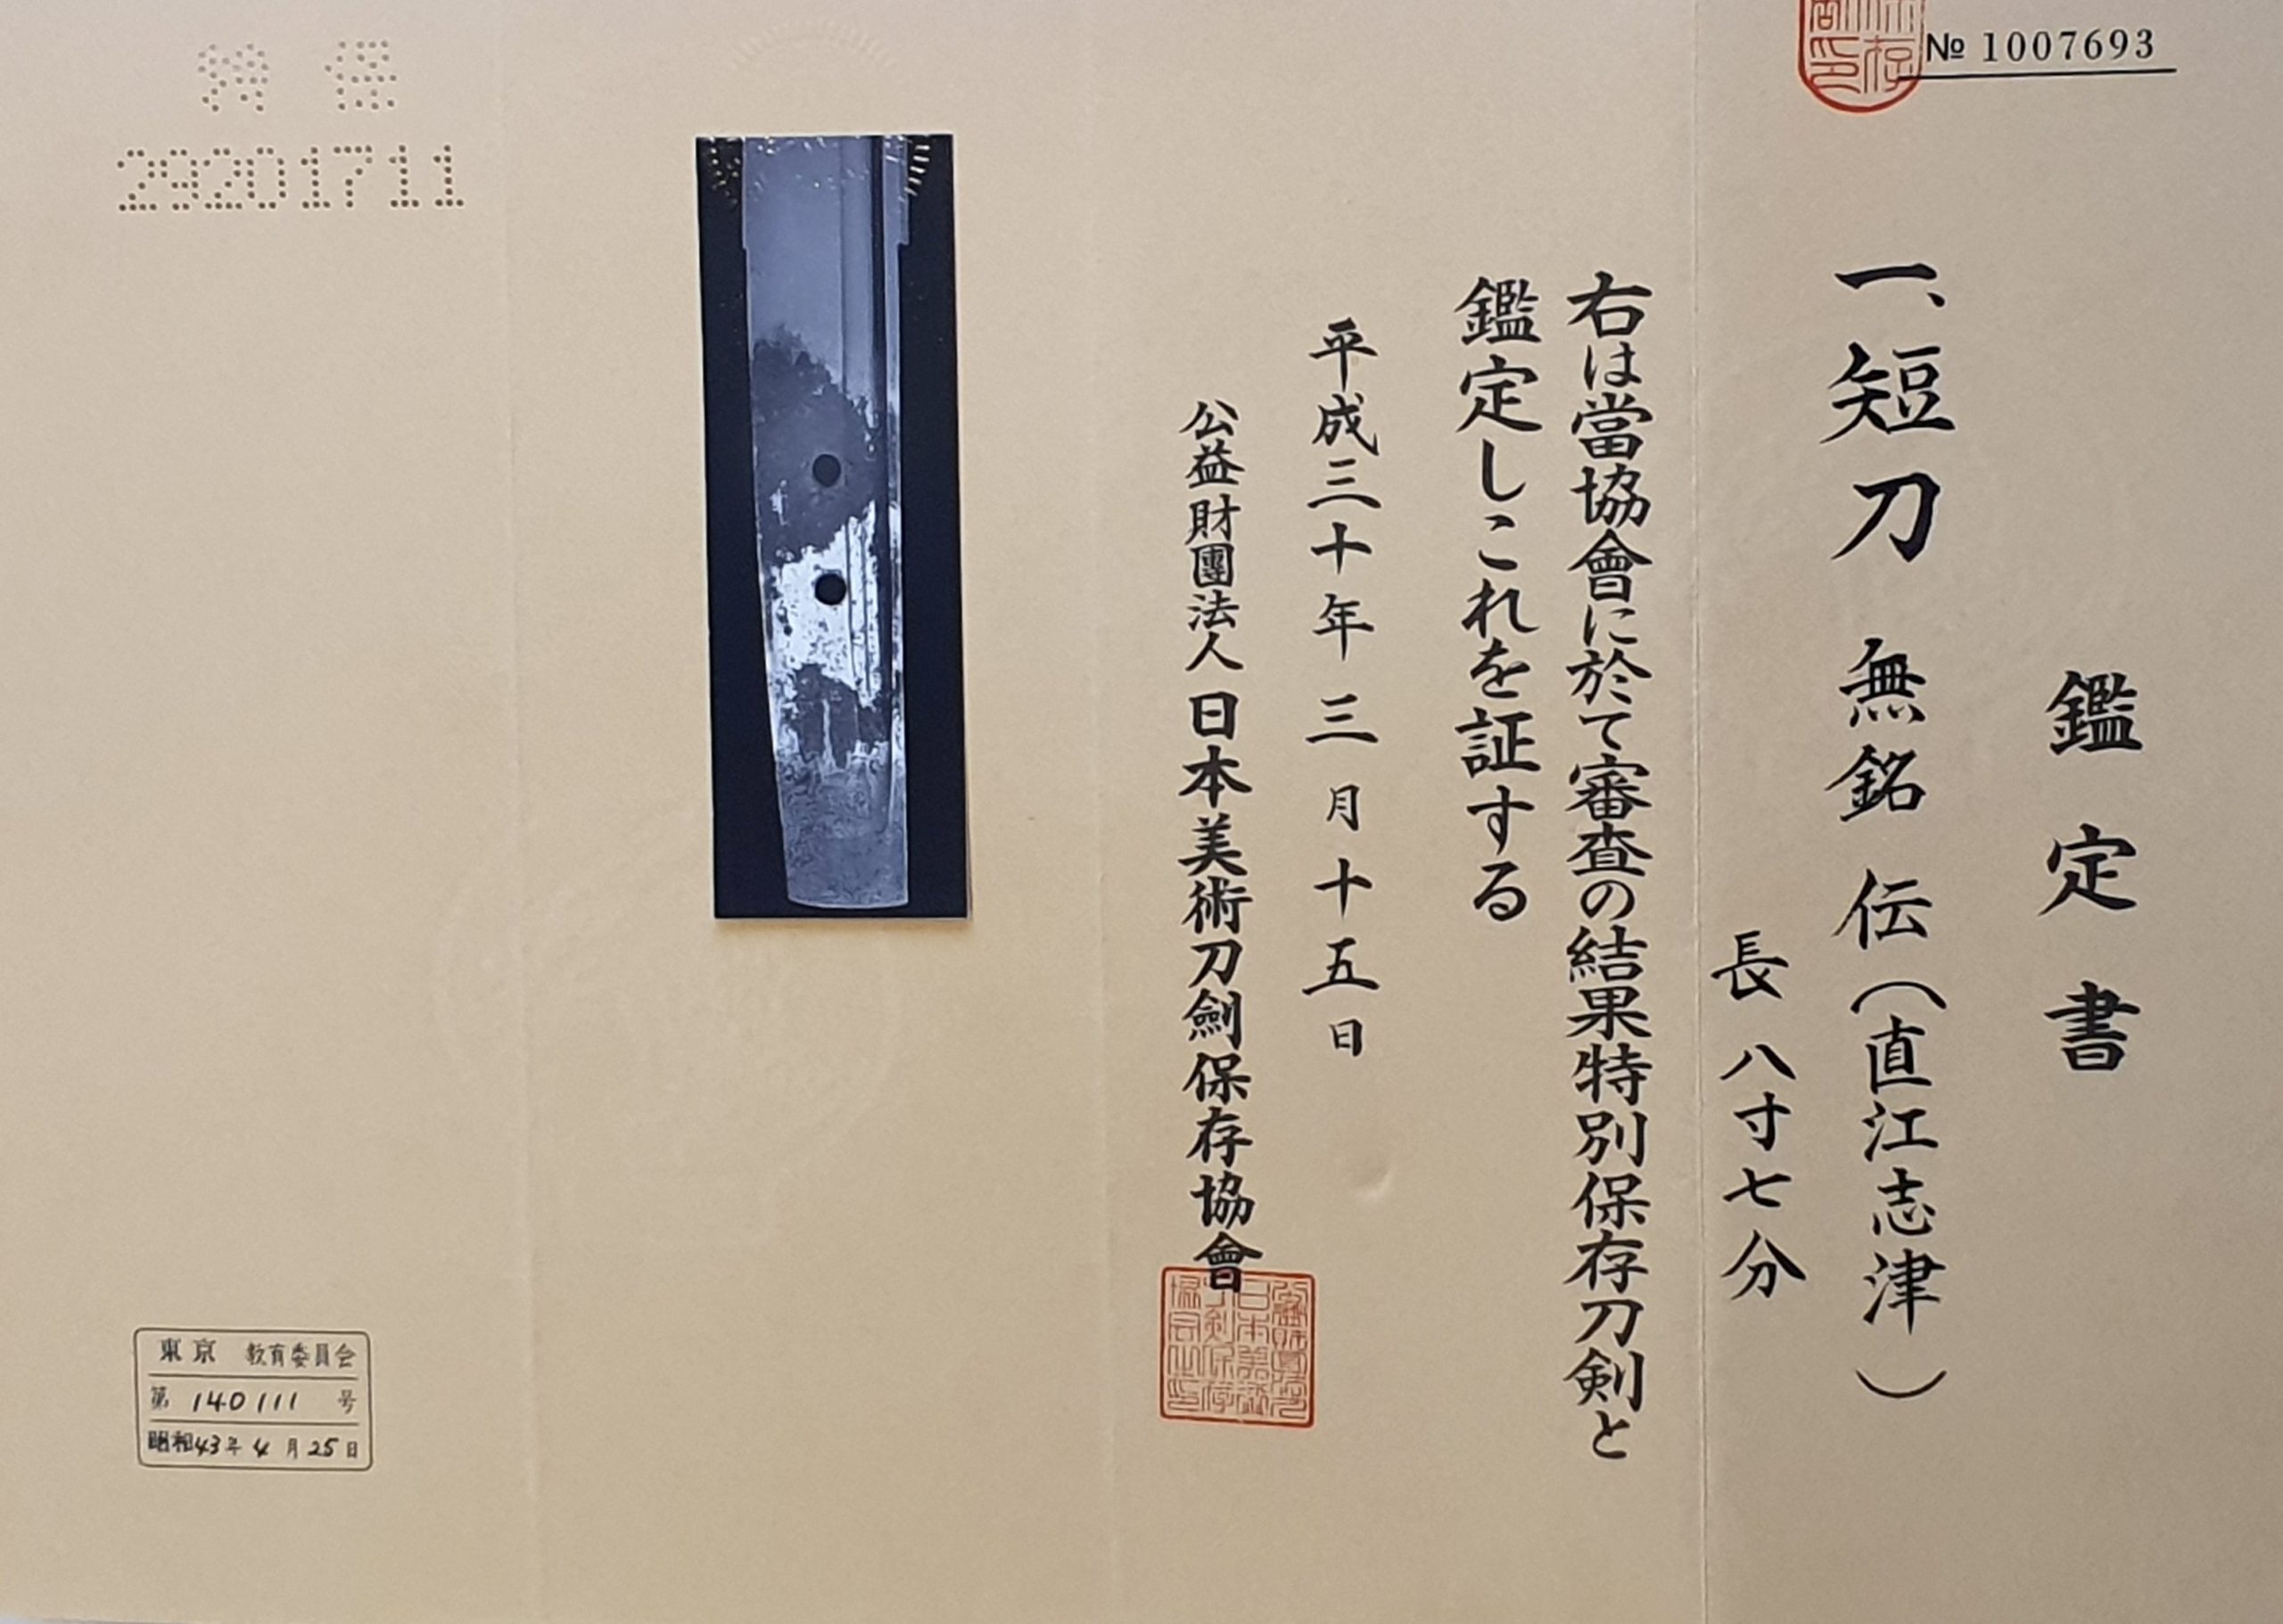 № 1007693
鑑定書
一、短刀 無銘 伝(直江志津)
長 八寸七分
右は當協會に於て審査の結果特別保存刀剣と
鑑定しこれを証する
平成三十年三月十五日
公益財團法人日本美術刀劍保存協會
特保
29201711
東京 教育委員会
第 140111 号
昭和43年4月25日